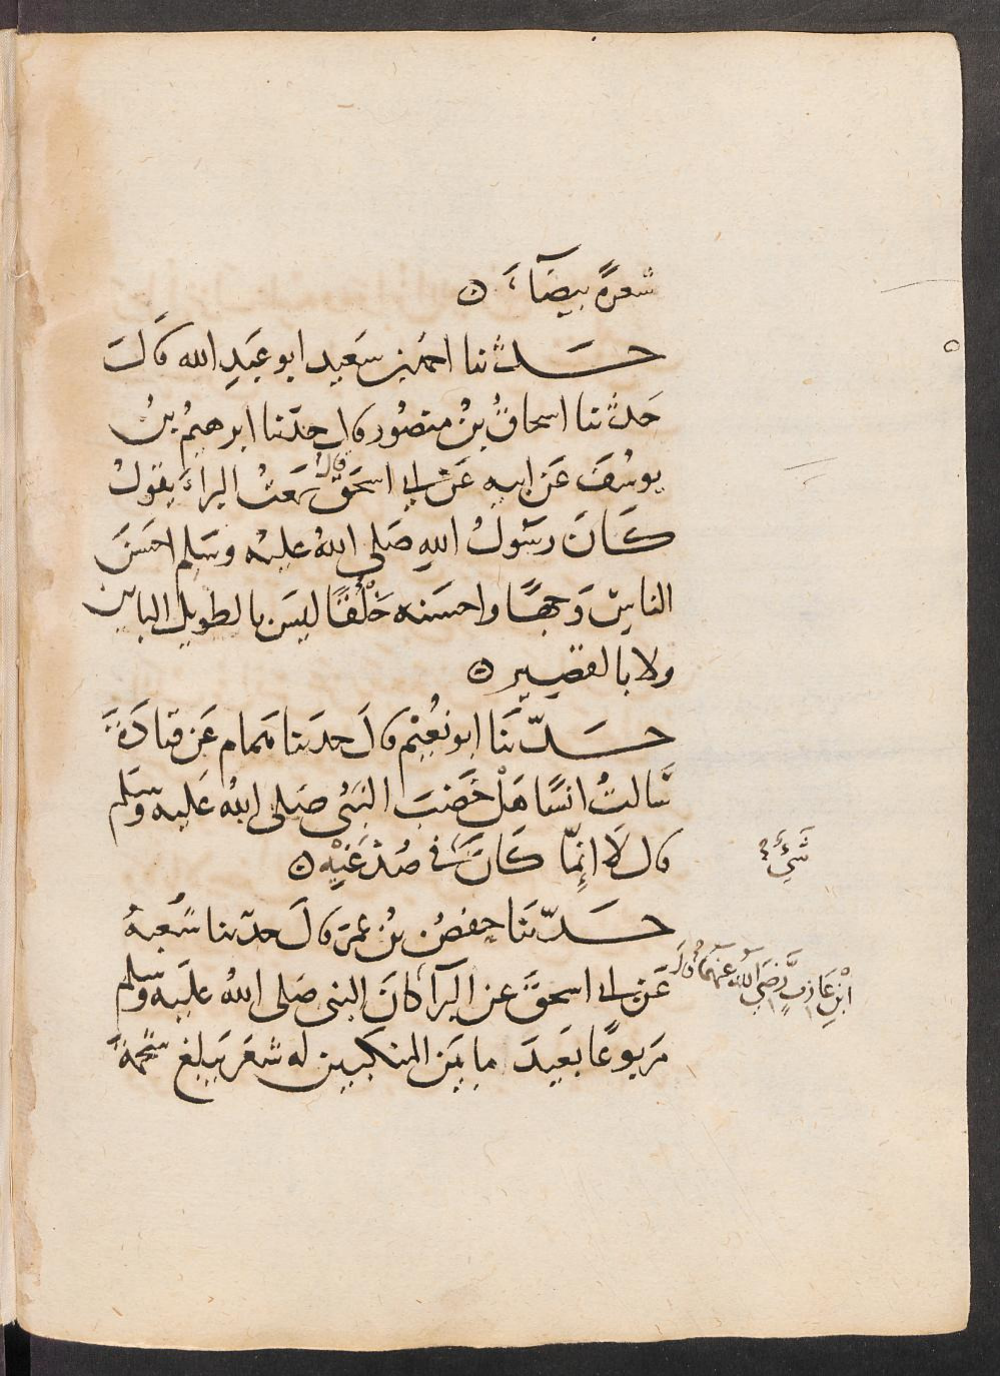 شعرةً بيضَآءَ ۝
حَدثنا احمدُ بن سَعيد ابو عَبدِ الله قَالَ
حَدثنا اسحاقُ بنُ منصُور قال حدّثنا ابرهيمُ بنُ
يوسُفَ عَن ابيه عَن ابي اسحَقَ قال سَمعتُ البراءَ يقولُ
كَانَ رسَولُ اللهِ صَلى اللهُ عليه وسَلم احسَنَ
الناسِ وَجهًا واحسَنه خَلْقًا ليسَ بالطويل البائن
ولا بالقصير ۝
حَدّثنَا ابو نُعَيْم قالَ حدثنا همام عَن قتادَةَ
سَالتُ انسًا هَلْ خَضَبَ النبَيُ صَلى اللهُ عَليه وسَلم
قال لَا انِمّا كَانَ شَيْ في صُدْغَيْه ۝
شَيْءٌ
حَدّثنَا حفصُ بنُ عمَرَ قالَ حدّثنا شعبهُ
عَن ابي اسحقَ عن البرآءِ كانَ النبى صَلى اللهُ عَليه وسَلم
ابْنِ عَازِبٍ رَّضِيَ اللهُ عَنهمَا قالَ
مَربوعًا بَعَيدَ ما بَيَن المنكبين له شعَر يَبلغ شحمةَ